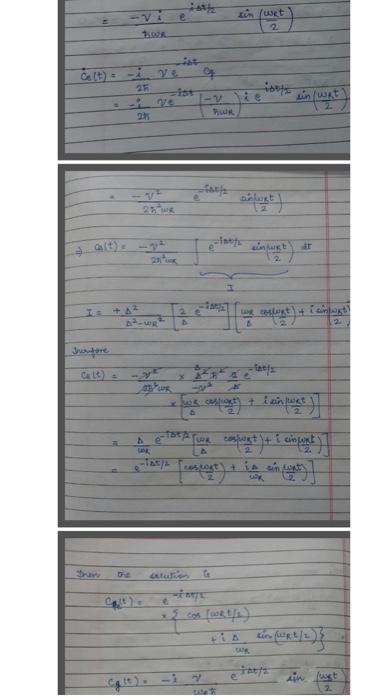 = -νi/ħωR e^{iΔt/2} sin(ωRt/2)
Ċe(t) = -i/2ħ νe^{-iΔt} Cg
= -i/2ħ νe^{-iΔt} (-ν/ħωR) i e^{iΔt/2} sin(ωRt/2)
= -ν²/2ħ²ωR e^{-iΔt/2} sin(ωRt/2)
⇒ Ce(t) = -ν²/2ħ²ωR ∫ e^{-iΔt/2} sin(ωRt/2) dt
I
I = +Δ²/Δ²-ωR² [2/Δ e^{-iΔt/2}] [ωR/Δ cos(ωRt/2) + i sin(ωRt/2)
Therefore
Ce(t) = -ν²/2ħ²ωR × Δ² ħ² 2/-ν² Δ e^{-iΔt/2}
× [ωR/Δ cos(ωRt/2) + i sin(ωRt/2)]
= Δ/ωR e^{-iΔt/2} [ωR/Δ cos(ωRt/2) + i sin(ωRt/2)]
= e^{-iΔt/2} [cos(ωRt/2) + iΔ/ωR sin(ωRt/2)]
Then the solution is
Ce(t) = e^{-iΔt/2}
× { cos(ωRt/2)
+ i Δ/ωR sin(ωRt/2) }
Cg(t) = -i ν/ωRħ e^{iΔt/2} sin(ωRt/2)